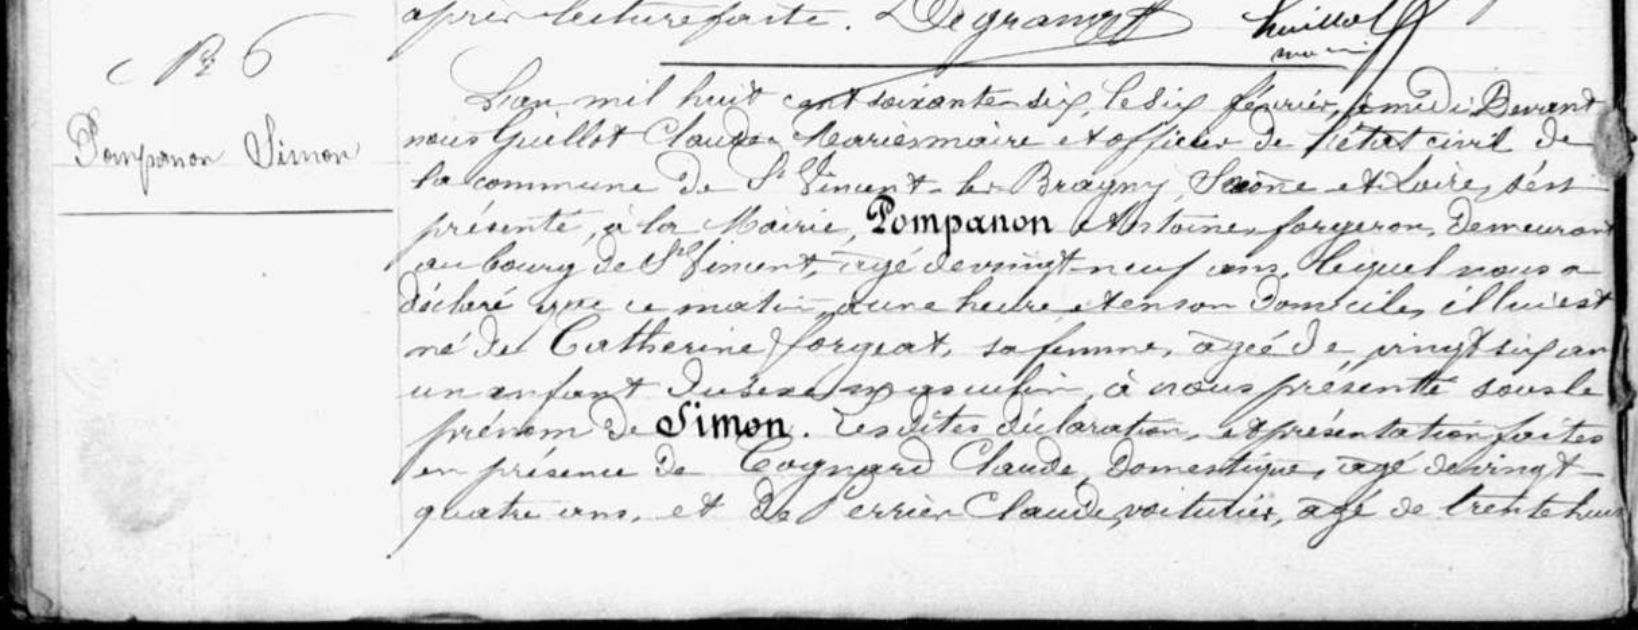 après lecture faite. Degrange Guillot
maire
N° 6
Pompanon Simon
L'an mil huit cent soixante six, le six février, à midi Devant
nous Guillot Claude Marie maire et officier de l'état civil de
la commune de St Vincent-les-Bragny, Saône et Loire, s'est
présenté, à la Mairie, Pompanon Antoine, forgeron, demeurant
au bourg de St Vincent, agé de vingt-neuf ans, lequel nous a
déclaré que ce matin, à une heure, et en son domicile, il lui est
né de Catherine forgeat, sa femme, agée de vingt six an
un enfant du sexe masculin, à nous présenté sous le
prénom de Simon. Les dites déclaration, et présentation faites
en présence de Cognard Claude, domestique, agé de vingt-
quatre ans, et de Perrier Claude, voiturier, agé de trente huit